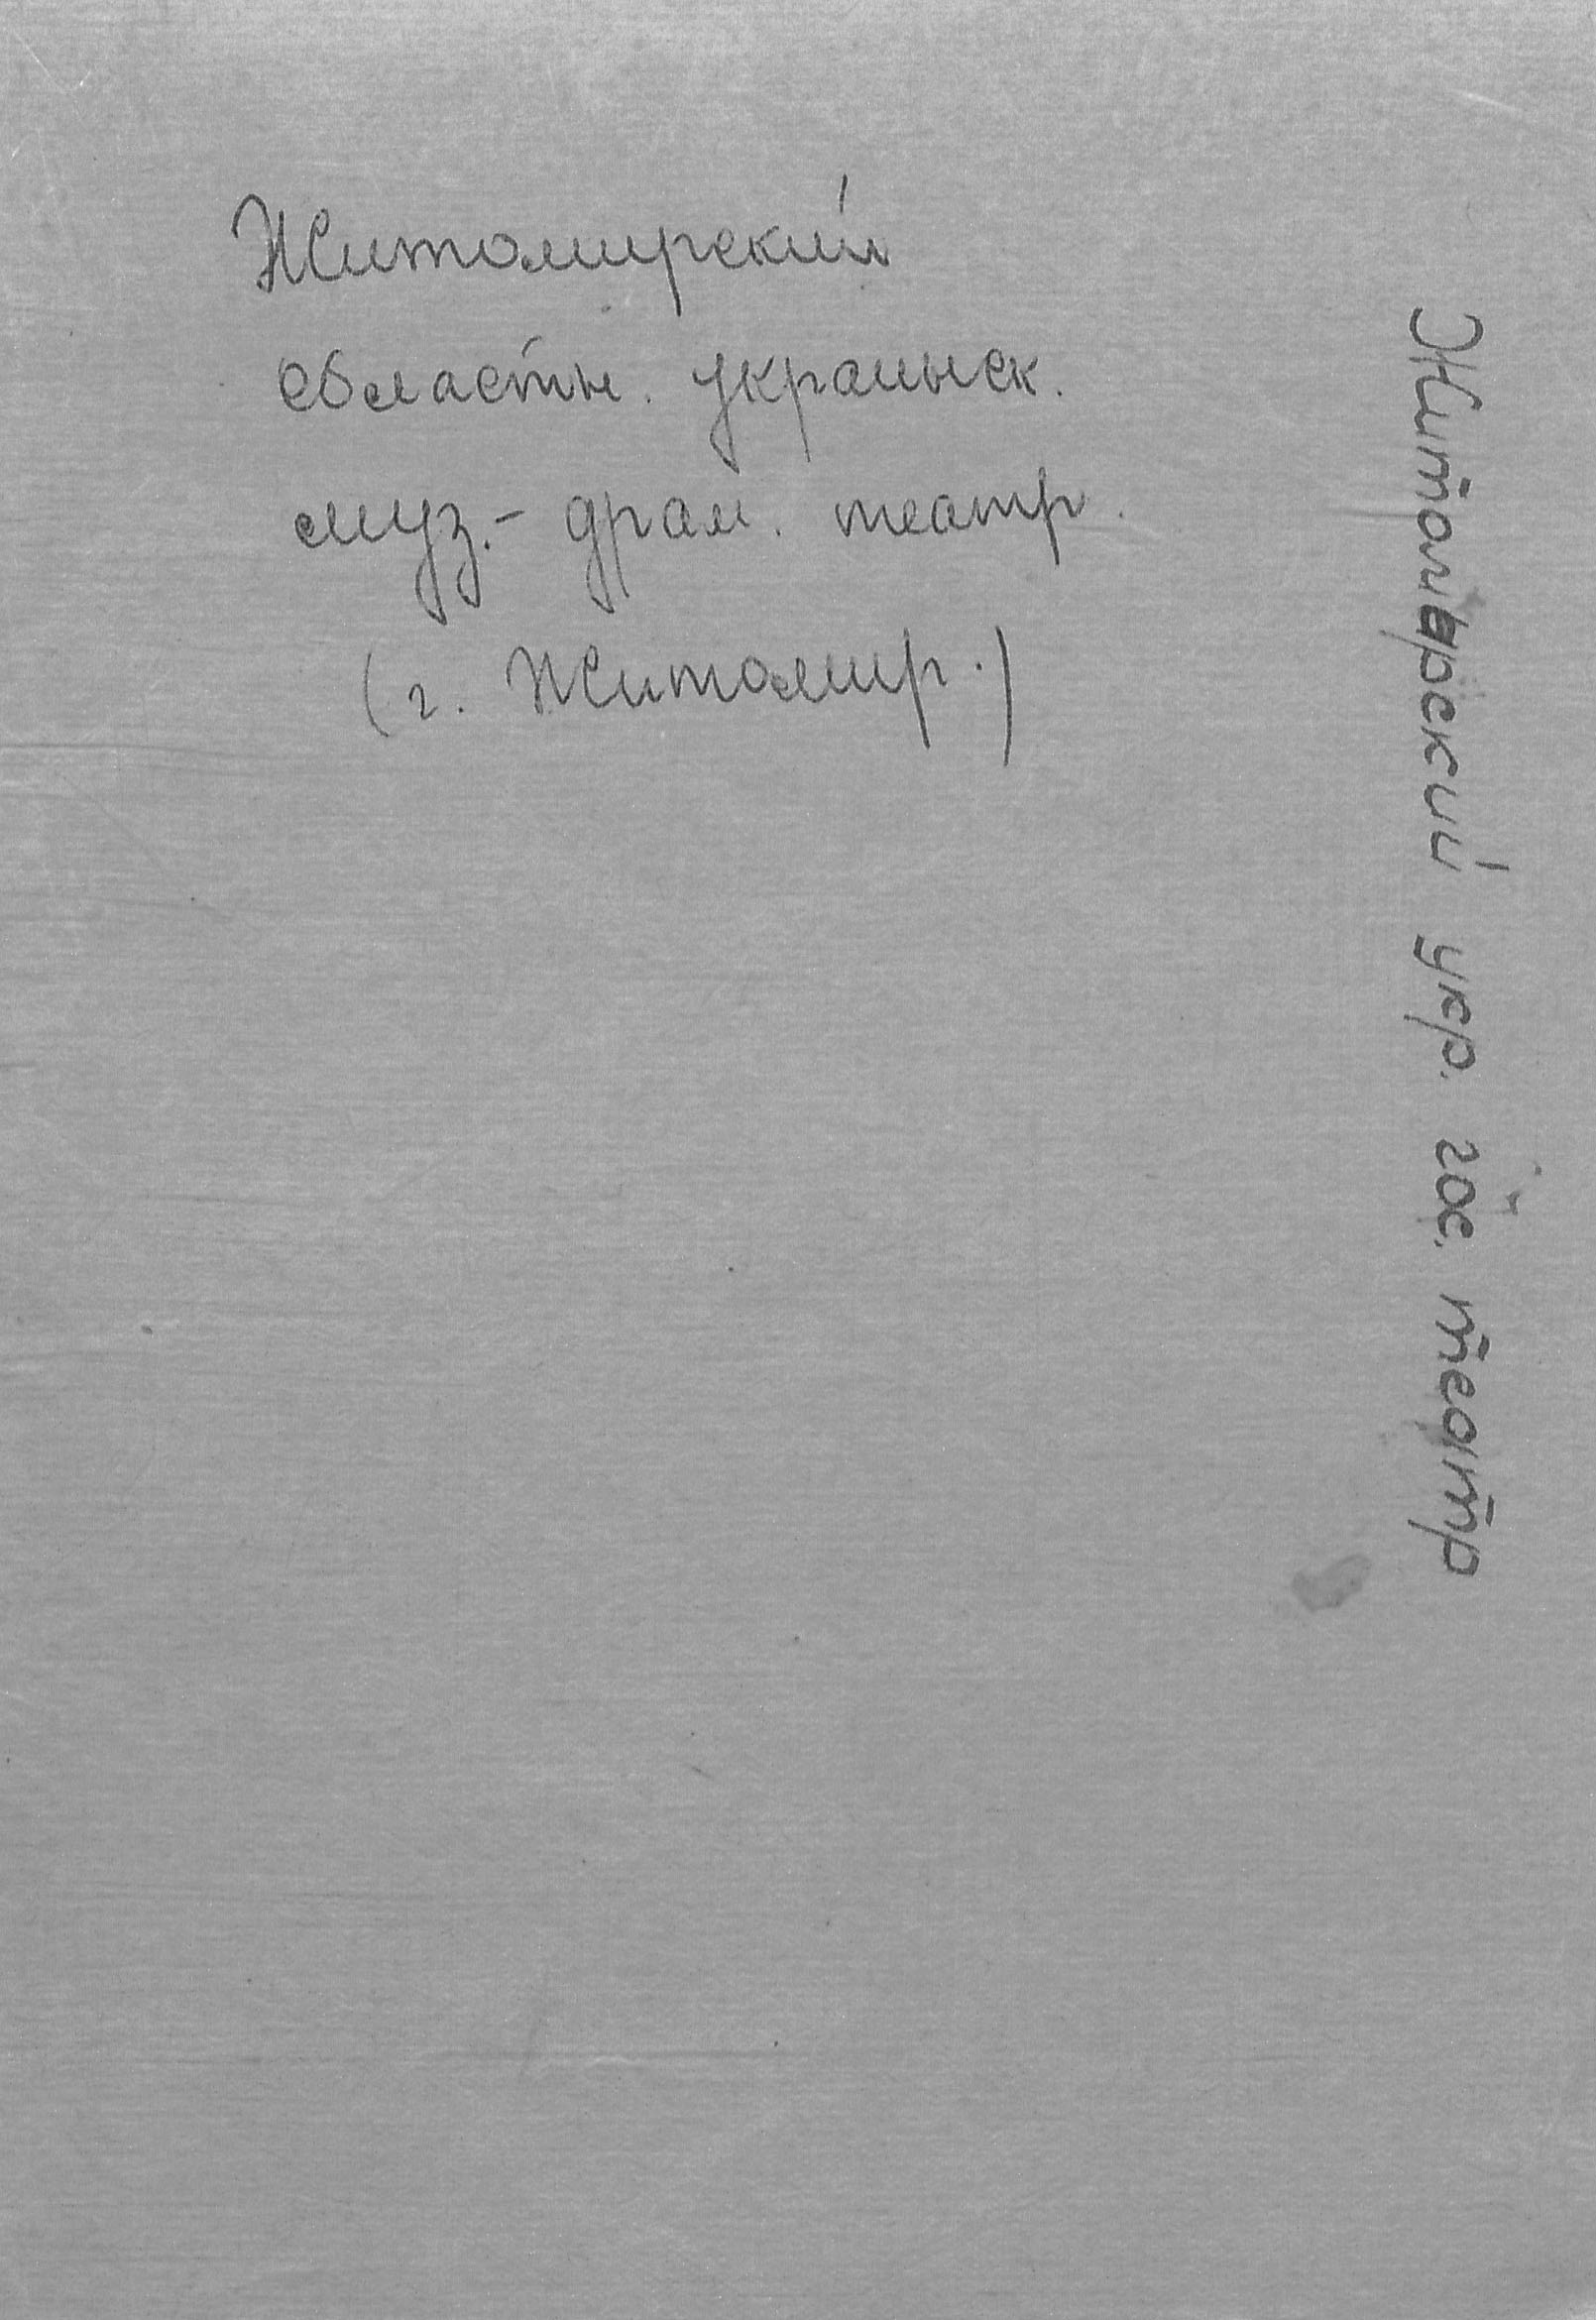 Житомирский
областн. украинск.
муз.- драм. театр.
(г. Житомир.)
Житомирский укр. гос. театр